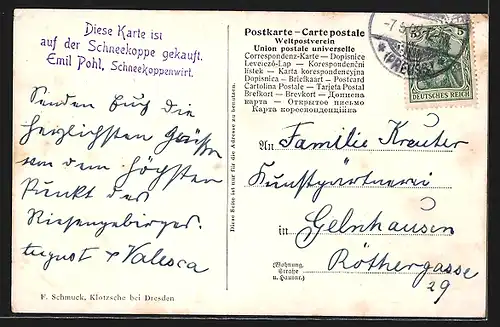 Diese Karte ist
auf der Schneekoppe gekauft.
Emil Pohl, Schneekoppenwirt.
Senden Euch die
herzlichsten Grüße
von dem höchsten
Punkt des
Riesengebirges.
August & Valesca
F. Schmuck, Klotzsche bei Dresden
Diese Seite ist nur für die Adresse zu benutzen.
Postkarte - Carte postale
Weltpostverein
Union postale universelle
Correspondenz-Karte - Dopisnice
Levelező-Lap - Korespondenční
lístek - Karta korespondencyjna
Dopisnica - Briefkaart - Postcard
Cartolina Postale - Tarjeta Postal
Brefkort - Brevkort - Дописна
карта - Открытое письмо
Карта кореспонденційна
DEUTSCHES REICH
An Familie Kreuter
Kunstgärtnerei
in Gelnhausen
(Wohnung, Straße u. Hausnr.)
Röthergasse
29